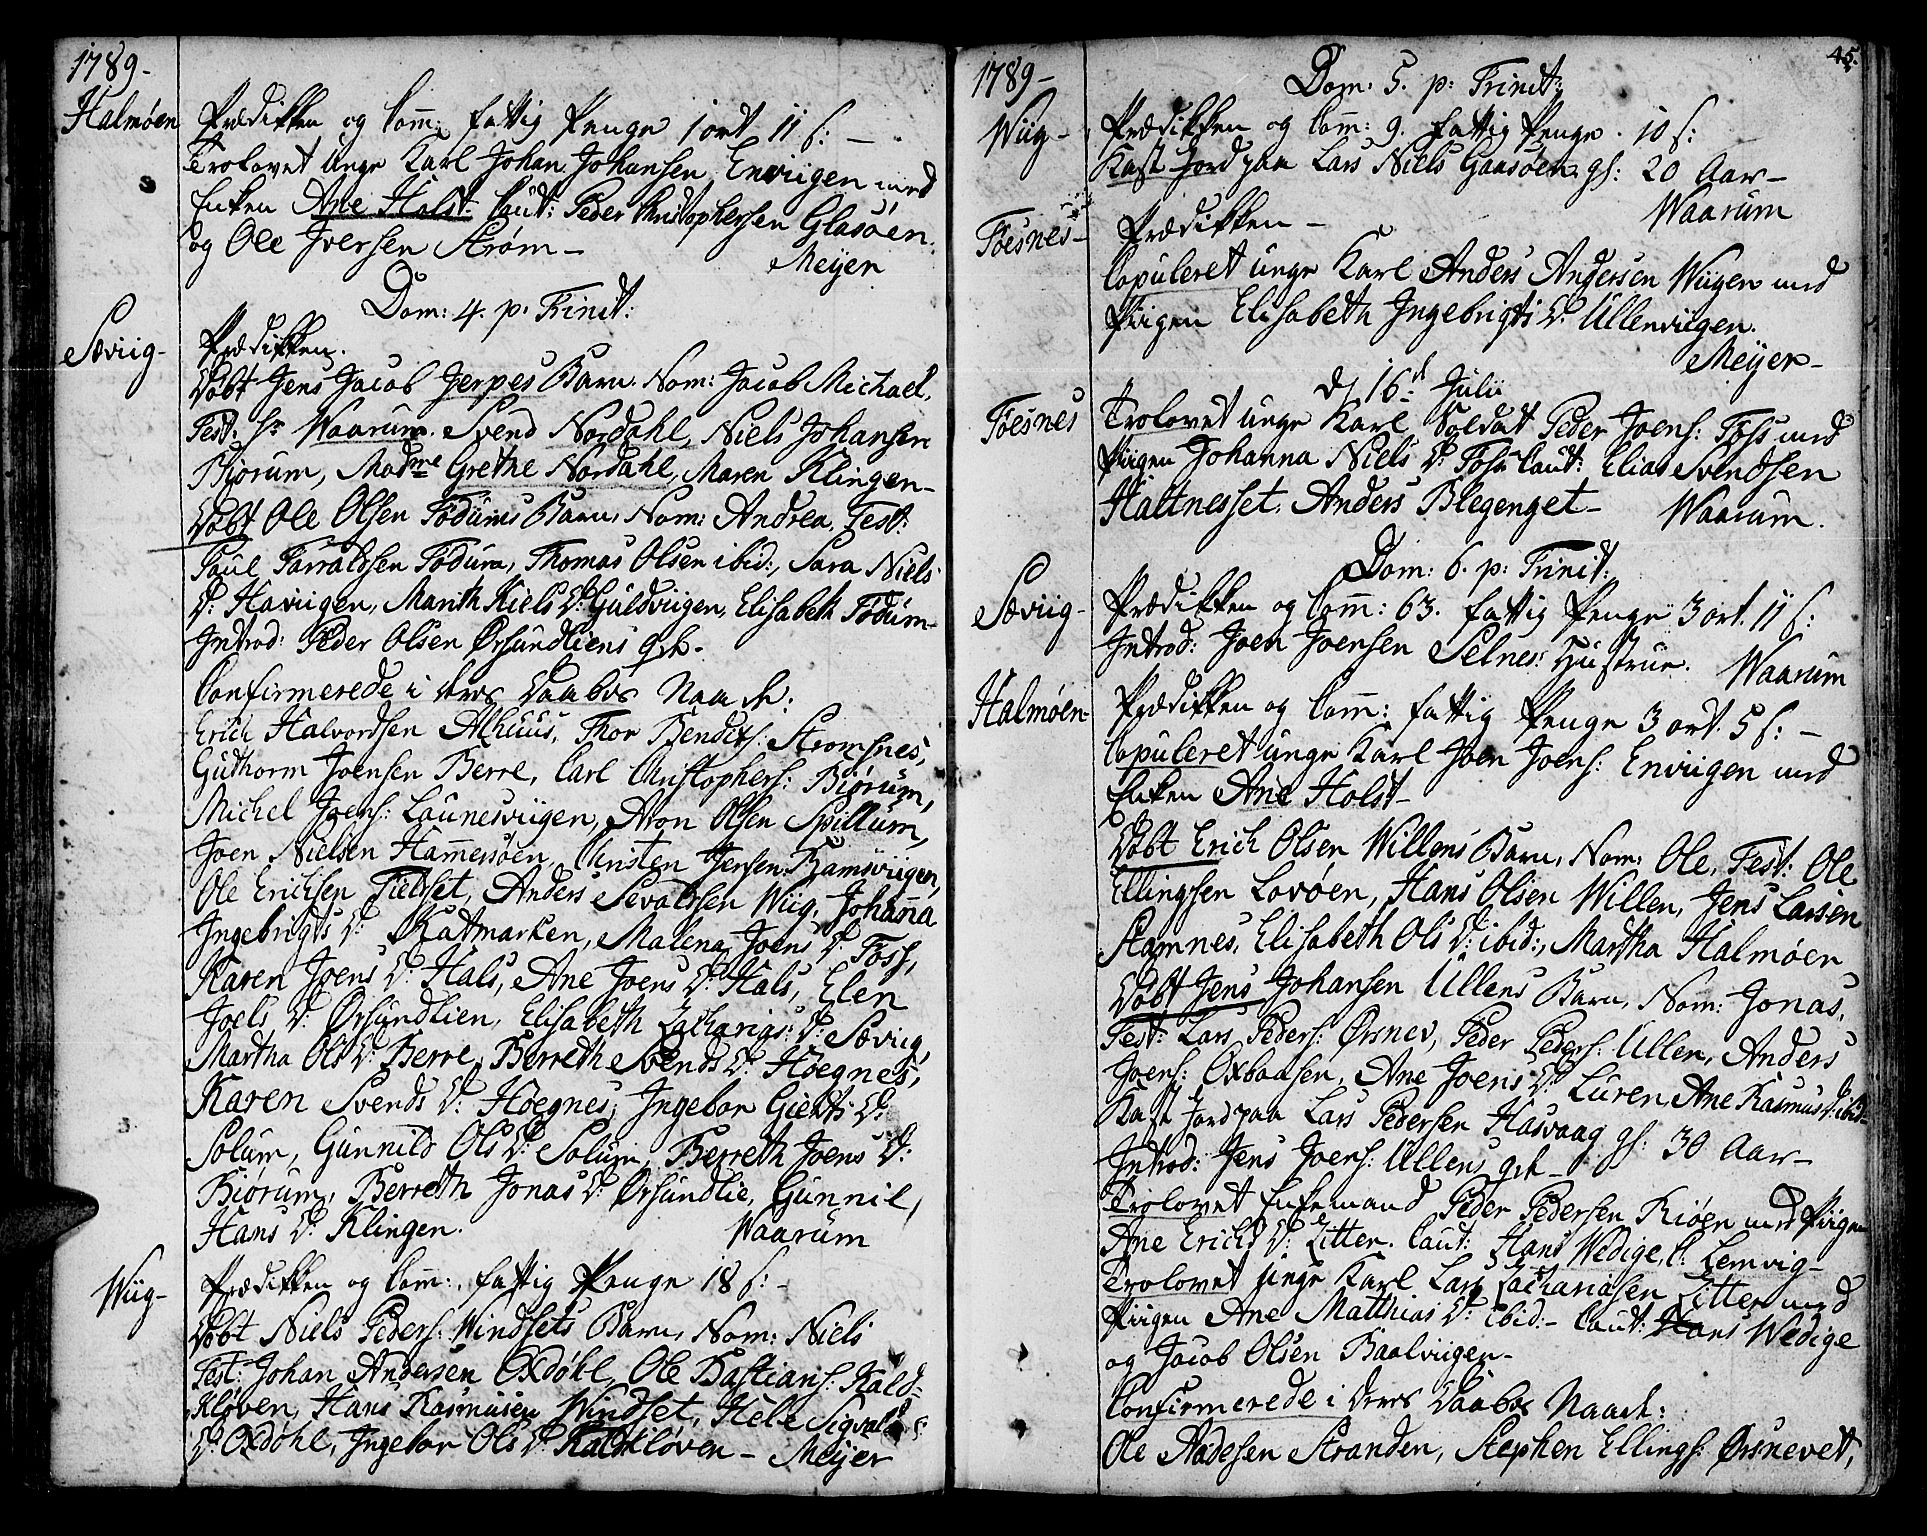 1789-
Halmøen
Prædikken og Comm: fattig Penge 1 ort 11 s: -
Trolovet unge Karl Johan Johansen Enviigen med
Enken Ane Holst Caut: Peder Christophersen Glasøen
og Ole Iversen Strøm-
Meyer
Dom: 4. p: Trinit:
Sæviig-
Prædikken.
Døbt Jens Jacob Jerpes Barn. Nom: Jacob Michael,
Test: Hr Waarum. Svend Nordahl, Niels Johansen
Biorum, Madme Grethe Nordahl, Maren Klingen-
Døbt Ole Olsen Fodums Barn, Nom: Andrea, Test:
Paul Tarraldsen Fodum, Thomas Olsen ibid:, Sara Niels
D: Haviigen, Marith Niels D: Guldviigen, Elisabeth Fodum-
Introd: Peder Olsen Ørsundliens qvh-
Confirmerede i deres Daabes Naade:
Erich Halvordsen Alhuus, Thor Bendixs: Stromsnes,
Guthorm Joensen Berre, Carl Christophers: Biørum,
Michel Joens: Launesviigen, Aron Olsen Spillum,
Joen Nielsen Hammersøen, Christen Jensen Ramsviigen,
Ole Erichsen Fieldset, Anders Sevaldsen Wiig, Johanna
Ingebrigts D: Ratmarken, Malena Joens D: Foss,
Karen Joens D: Hals, Ane Joens D: Hals, Elen
Joels D: Ørsundlien, Elisabeth Zacharias: D: Sæviig,
Martha Ols D: Berre, Berreth Svends D: Høegnes,
Karen Svends D: Høegnes, Ingebor Gierts D:
Solum, Gunnild Ols D: Solum, Berreth Joens D:
Biorum, Berreth Jonas D: Ørsundlie, Gunnil,
Hans D: Klingen.
Waarum
Wiig-
Prædikken og Comm: fattig Penge 18 s: -
Døbt Niels Peders: Windsets Barn, Nom: Niels
Test: Johan Andersen Oxdøhl, Ole Bastians: Kald=
Kløven, Hans Rasmusen Windset, Hele Sigvalds
D: Oxdøhl, Ingebor Ols D: Kaldkløven-
Meyer
45.
1789-
Dom: 5. p: Trinit:
Wiig-
Prædikken og Comm: 9. fattig Penge. 10 s:
Kast Jord paa Lars Niels Gaasøen, gl: 20 Aar-
Waarum
Foesnes-
Prædikken-
Copuleret unge Karl Anders Andersen Wiigen med
Piigen Elisabeth Ingebrigts D: Ullenviigen.
Meyer-
d 16d Julii
Foesnes
Trolovet unge Karl Soldat Peder Joens: Foss med
Piigen Johanna Niels D: Foss Caut: Elias Svendsen
Hattnesset, Anders Blegenget-
Waarum.
Dom: 6. p: Trinit:
Sæviig-
Prædikken og Comm: 63. fattig Penge 3 ort. 11 s:
Introd: Joen Joensen Selnes: Hustrue.
Waarum
Halmøen-
Prædikken og Comm: fattig Penge 3 ort. 5 s: -
Copuleret unge Karl Joen Joens: Enviigen med
Enken Ane Holst-
Døbt Erich Olsen Willens Barn, Nom: Ole, Test: Ole
Ellingsen Lovøen, Hans Olsen Willen, Jens Larsen
Stamnes, Elisabeth Ols D: ibid:, Martha Halmøen
Døbt Jens Johansen Ullens Barn, Nom: Jonas,
Test: Lars Peders: Ørsnev, Peder Peders: Ullen, Anders
Joens: Oxbaasen, Ane Joens D: Luren, Ane Rasmus D: ibid-
Kast Jord paa Lars Pedersen Hasvaag gl: 30 Aar-
Introd: Jens Joens: Ullens qvh-
Trolovet Enkemand Peder Pedersen Kiøen med Piigen
Ane Erichs D: Zitter. Caut: Hans Wedige, C: Lemvig-
Trolovet unge Karl Lars Zachariasen Zitter med
Piigen Ane Matthias D: ibid:- Caut: Hans Wedige
og Jacob Olsen Baalviigen-
Confirmerede i deres Daabes Naade:
Ole Aadesen Stranden, Stephen Ellings: Ørsnevet,